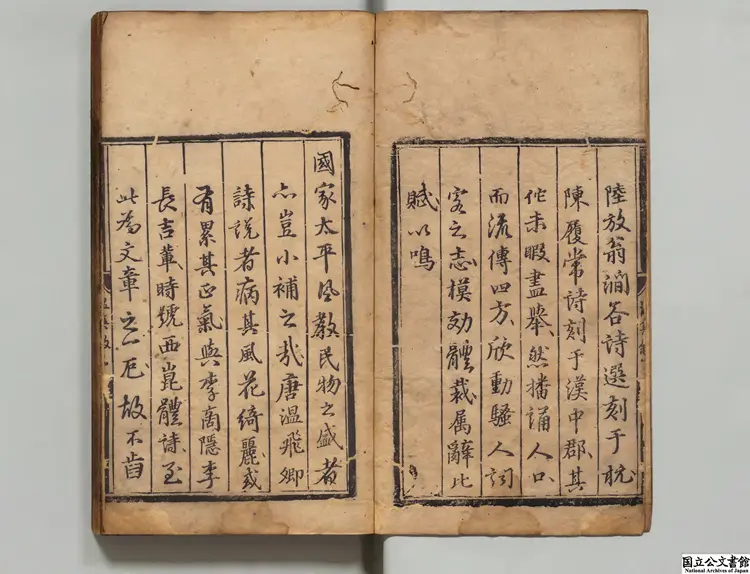 陸放翁澗谷詩選刻于杭
陳履常詩刻于漢中郡其
佗未暇盡舉然播誦人口
而流傳四方欣動騷人詞
客之志模効體裁属辭比
賦以鳴
國家太平風教民物之盛者
亦豈小補之哉唐温飛卿
詩説者病其風花綺麗或
有累其正氣與李商隱李
長吉軰時號西崑體詩至
此為文章之一厄故不齒
国立公文書館
National Archives of Japan